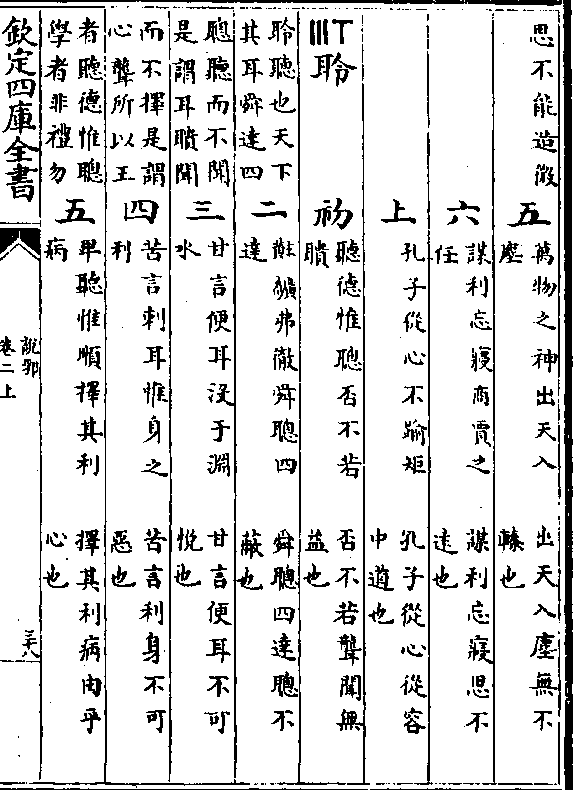 思不能造微
五
萬物之神出天入
塵
出天入塵無不
轃也
六
謀利忘寢商賈之
任
謀利忘寢思不
遠也
上
孔子從心不踰矩
孔子從心從容
中道也
聆
初
聽德惟聰否不若
聵
否不若聾聞無
益也
聆聽也天下
其耳舜達四
二
黈纊弗徹舜聰四
達
舜聰四達聰不
蔽也
聰聽而不聞
是謂耳聵聞
三
甘言便耳沒于淵
水
甘言便耳不可
悅也
而不擇是謂
心聾所以王
四
苦言刺耳惟身之
利
苦言利身不可
惡也
者聽德惟聰
學者非禮勿
五
聽惟順擇其利
病
擇其利病由乎
心也
欽定四庫全書
說郛
卷二上
三十八